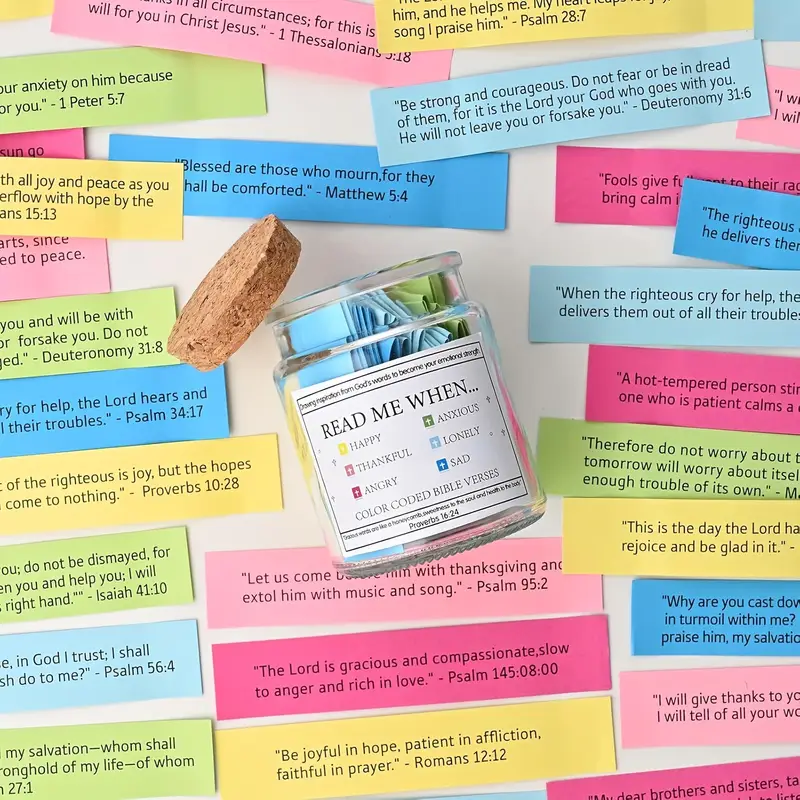 in all circumstances; for this is
will for you in Christ Jesus." - 1 Thessalonians 5:18
him, and he helps me. My heart leaps for
song I praise him." - Psalm 28:7
our anxiety on him because
or you." - 1 Peter 5:7
"Be strong and courageous. Do not fear or be in dread
of them, for it is the Lord your God who goes with you.
He will not leave you or forsake you." - Deuteronomy 31:6
"I
I
sun go
"Blessed are those who mourn,for they
shall be comforted." - Matthew 5:4
th all joy and peace as you
erflow with hope by the
ans 15:13
"Fools give full vent to their
bring calm i
"The righteous
he delivers then
arts, since
ed to peace.
"When the righteous cry for help, the
delivers them out of all their troubles
you and will be with
or forsake you. Do not
ged." - Deuteronomy 31:8
"A hot-tempered person stir
one who is patient calms a
ry for help, the Lord hears and
l their troubles." - Psalm 34:17
Drawing inspiration from God's words to become your emotional strength
READ ME WHEN...
HAPPY
THANKFUL
ANGRY
ANXIOUS
LONELY
SAD
COLOR CODED BIBLE VERSES
"Gracious words are like a honeycomb,sweetness to the soul and health to the body"
Proverbs 16:24
"Therefore do not worry about t
tomorrow will worry about itsel
enough trouble of its own." -
t of the righteous is joy, but the hopes
come to nothing." - Proverbs 10:28
"This is the day the Lord ha
rejoice and be glad in it." -
you; do not be dismayed, for
en you and help you; I will
s right hand."" - Isaiah 41:10
"Let us come before him with thanksgiving and
extol him with music and song." - Psalm 95:2
"Why are you cast dow
in turmoil within me?
praise him, my salvatio
se, in God I trust; I shall
sh do to me?" - Psalm 56:4
"The Lord is gracious and compassionate,slow
to anger and rich in love." - Psalm 145:08:00
"I will give thanks to yo
I will tell of all your wo
my salvation—whom shall
ronghold of my life—of whom
27:1
"Be joyful in hope, patient in affliction,
faithful in prayer." - Romans 12:12
"My dear brothers and sisters, ta